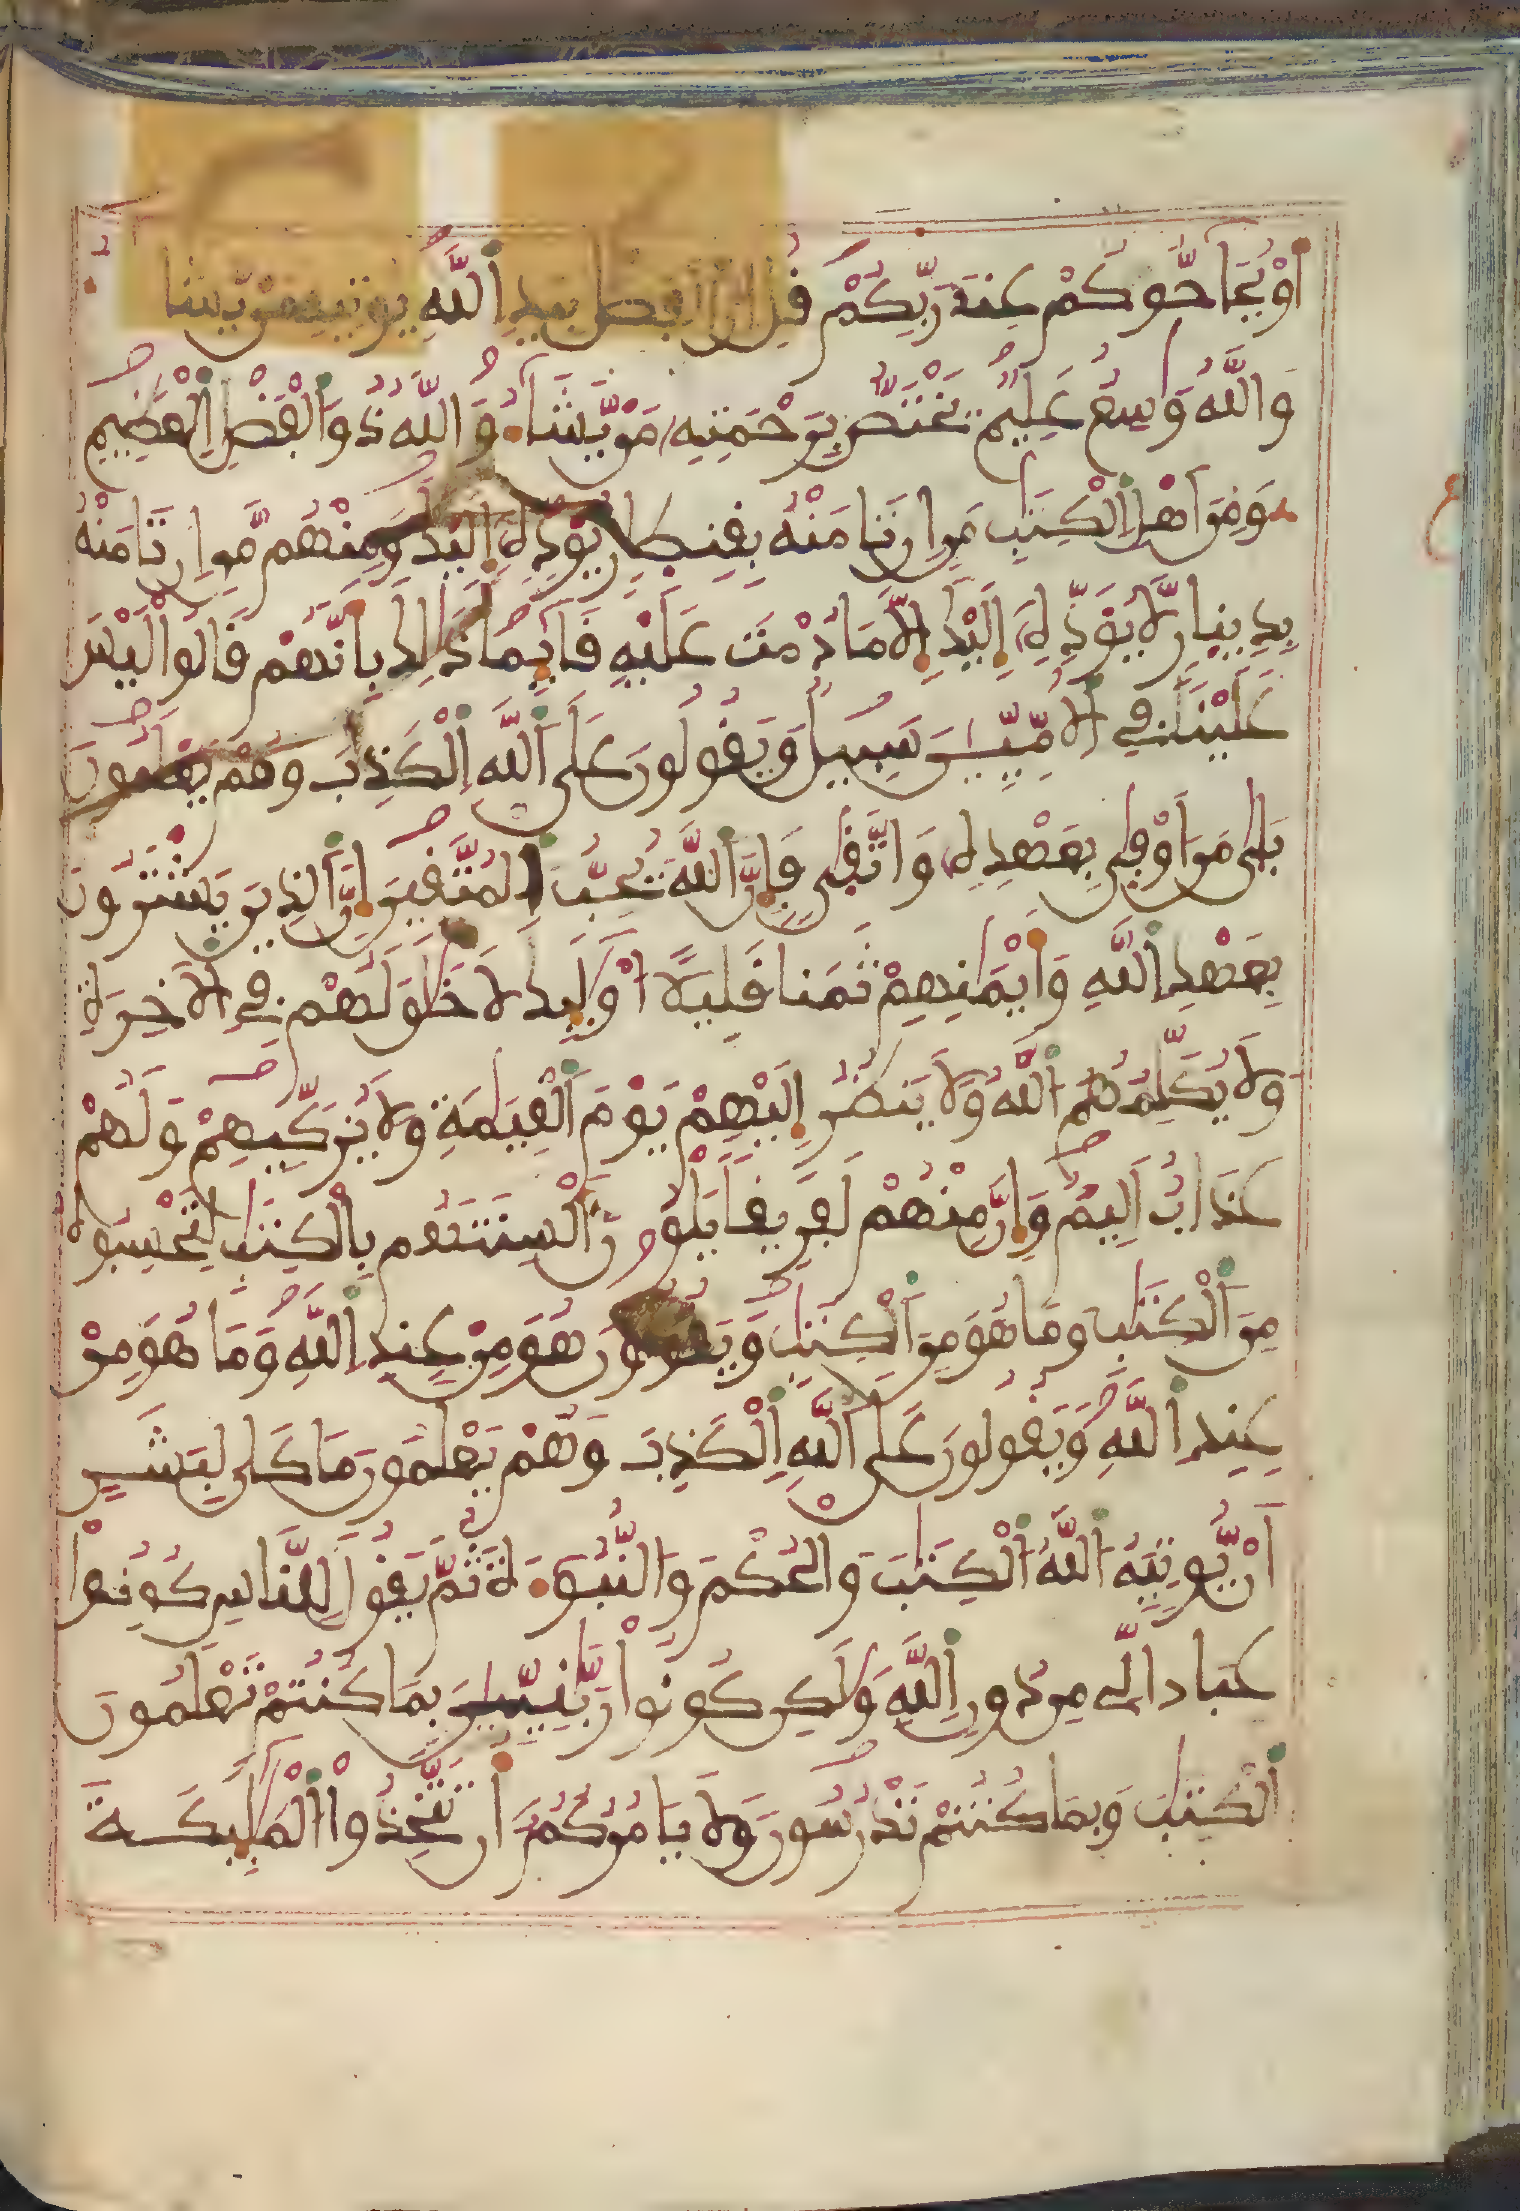 أَوْ يُحَاجُّوكُمْ عِندَ رَبِّكُمْ قُلِ انَّ اَ۬لْفَضْلَ بِيَدِ اِ۬للَّهِ يُوتِيهِ مَنْ يَّشَا
وَاللَّهُ وَٰسِعٌ عَلِيمٌ يَخْتَصُّ بِرَحْمَتِهِ مَنْ يَّشَاءُ وَاللَّهُ ذُو اَ۬لْفَضْلِ اِ۬لْعَظِيمِ
وَمِنَ اَهْلِ اِ۬لْكِتَٰبِ مَنِ ان تَامَنْهُ بِقِنطَارٍ يُؤَدِّهِ إِلَيْكَ وَمِنْهُم مَّنِ ان تَامَنْهُ
بِدِينَارٍ لَّا يُؤَدِّهِ إِلَيْكَ إِلَّا مَا دُمْتَ عَلَيْهِ قَائِمًا ذَٰلِكَ بِأَنَّهُمْ قَالُوا لَيْسَ
عَلَيْنَا فِي اِ۬لُامِّيِّينَ سَبِيلٌ وَيَقُولُونَ عَلَى اَ۬للَّهِ اِ۬لْكَذِبَ وَهُمْ يَعْلَمُونَ
بَلَىٰ مَنَ اَوْفَىٰ بِعَهْدِهِ وَاتَّقَىٰ فَإِنَّ اَ۬للَّهَ يُحِبُّ اُ۬لْمُتَّقِينَ إِنَّ اَ۬لذِينَ يَشْتَرُونَ
بِعَهْدِ اِ۬للَّهِ وَأَيْمَٰنِهِمْ ثَمَنًا قَلِيلًا اُوْلَٰئِكَ لَا خَلَٰقَ لَهُمْ فِي اِ۬لَاخِرَةِ
وَلَا يُكَلِّمُهُمُ اُ۬للَّهُ وَلَا يَنظُرُ إِلَيْهِمْ يَوْمَ اَ۬لْقِيَٰمَةِ وَلَا يُزَكِّيهِمْ وَلَهُمْ
عَذَابٌ اَلِيمٌ وَإِنَّ مِنْهُمْ لَفَرِيقًا يَلْوُۥنَ أَلْسِنَتَهُم بِالْكِتَٰبِ لِتَحْسِبُوهُ
مِنَ اَ۬لْكِتَٰبِ وَمَا هُوَ مِنَ اَ۬لْكِتَٰبِ وَيَقُولُونَ هُوَ مِنْ عِندِ اِ۬للَّهِ وَمَا هُوَ مِنْ
عِندِ اِ۬للَّهِ وَيَقُولُونَ عَلَى اَ۬للَّهِ اِ۬لْكَذِبَ وَهُمْ يَعْلَمُونَ مَا كَانَ لِبَشَرٍ
اَنْ يُّوتِيَهُ اُ۬للَّهُ اُ۬لْكِتَٰبَ وَالْحُكْمَ وَالنُّبُوءَةَ ثُمَّ يَقُولَ لِلنَّاسِ كُونُوا
عِبَادًا لِّي مِن دُونِ اِ۬للَّهِ وَلَٰكِن كُونُوا رَبَّٰنِيِّينَ بِمَا كُنتُمْ تَعْلَمُونَ
اَ۬لْكِتَٰبَ وَبِمَا كُنتُمْ تَدْرُسُونَ وَلَا يَامُرُكُمُ أَن تَتَّخِذُوا اُ۬لْمَلَٰئِكَةَ